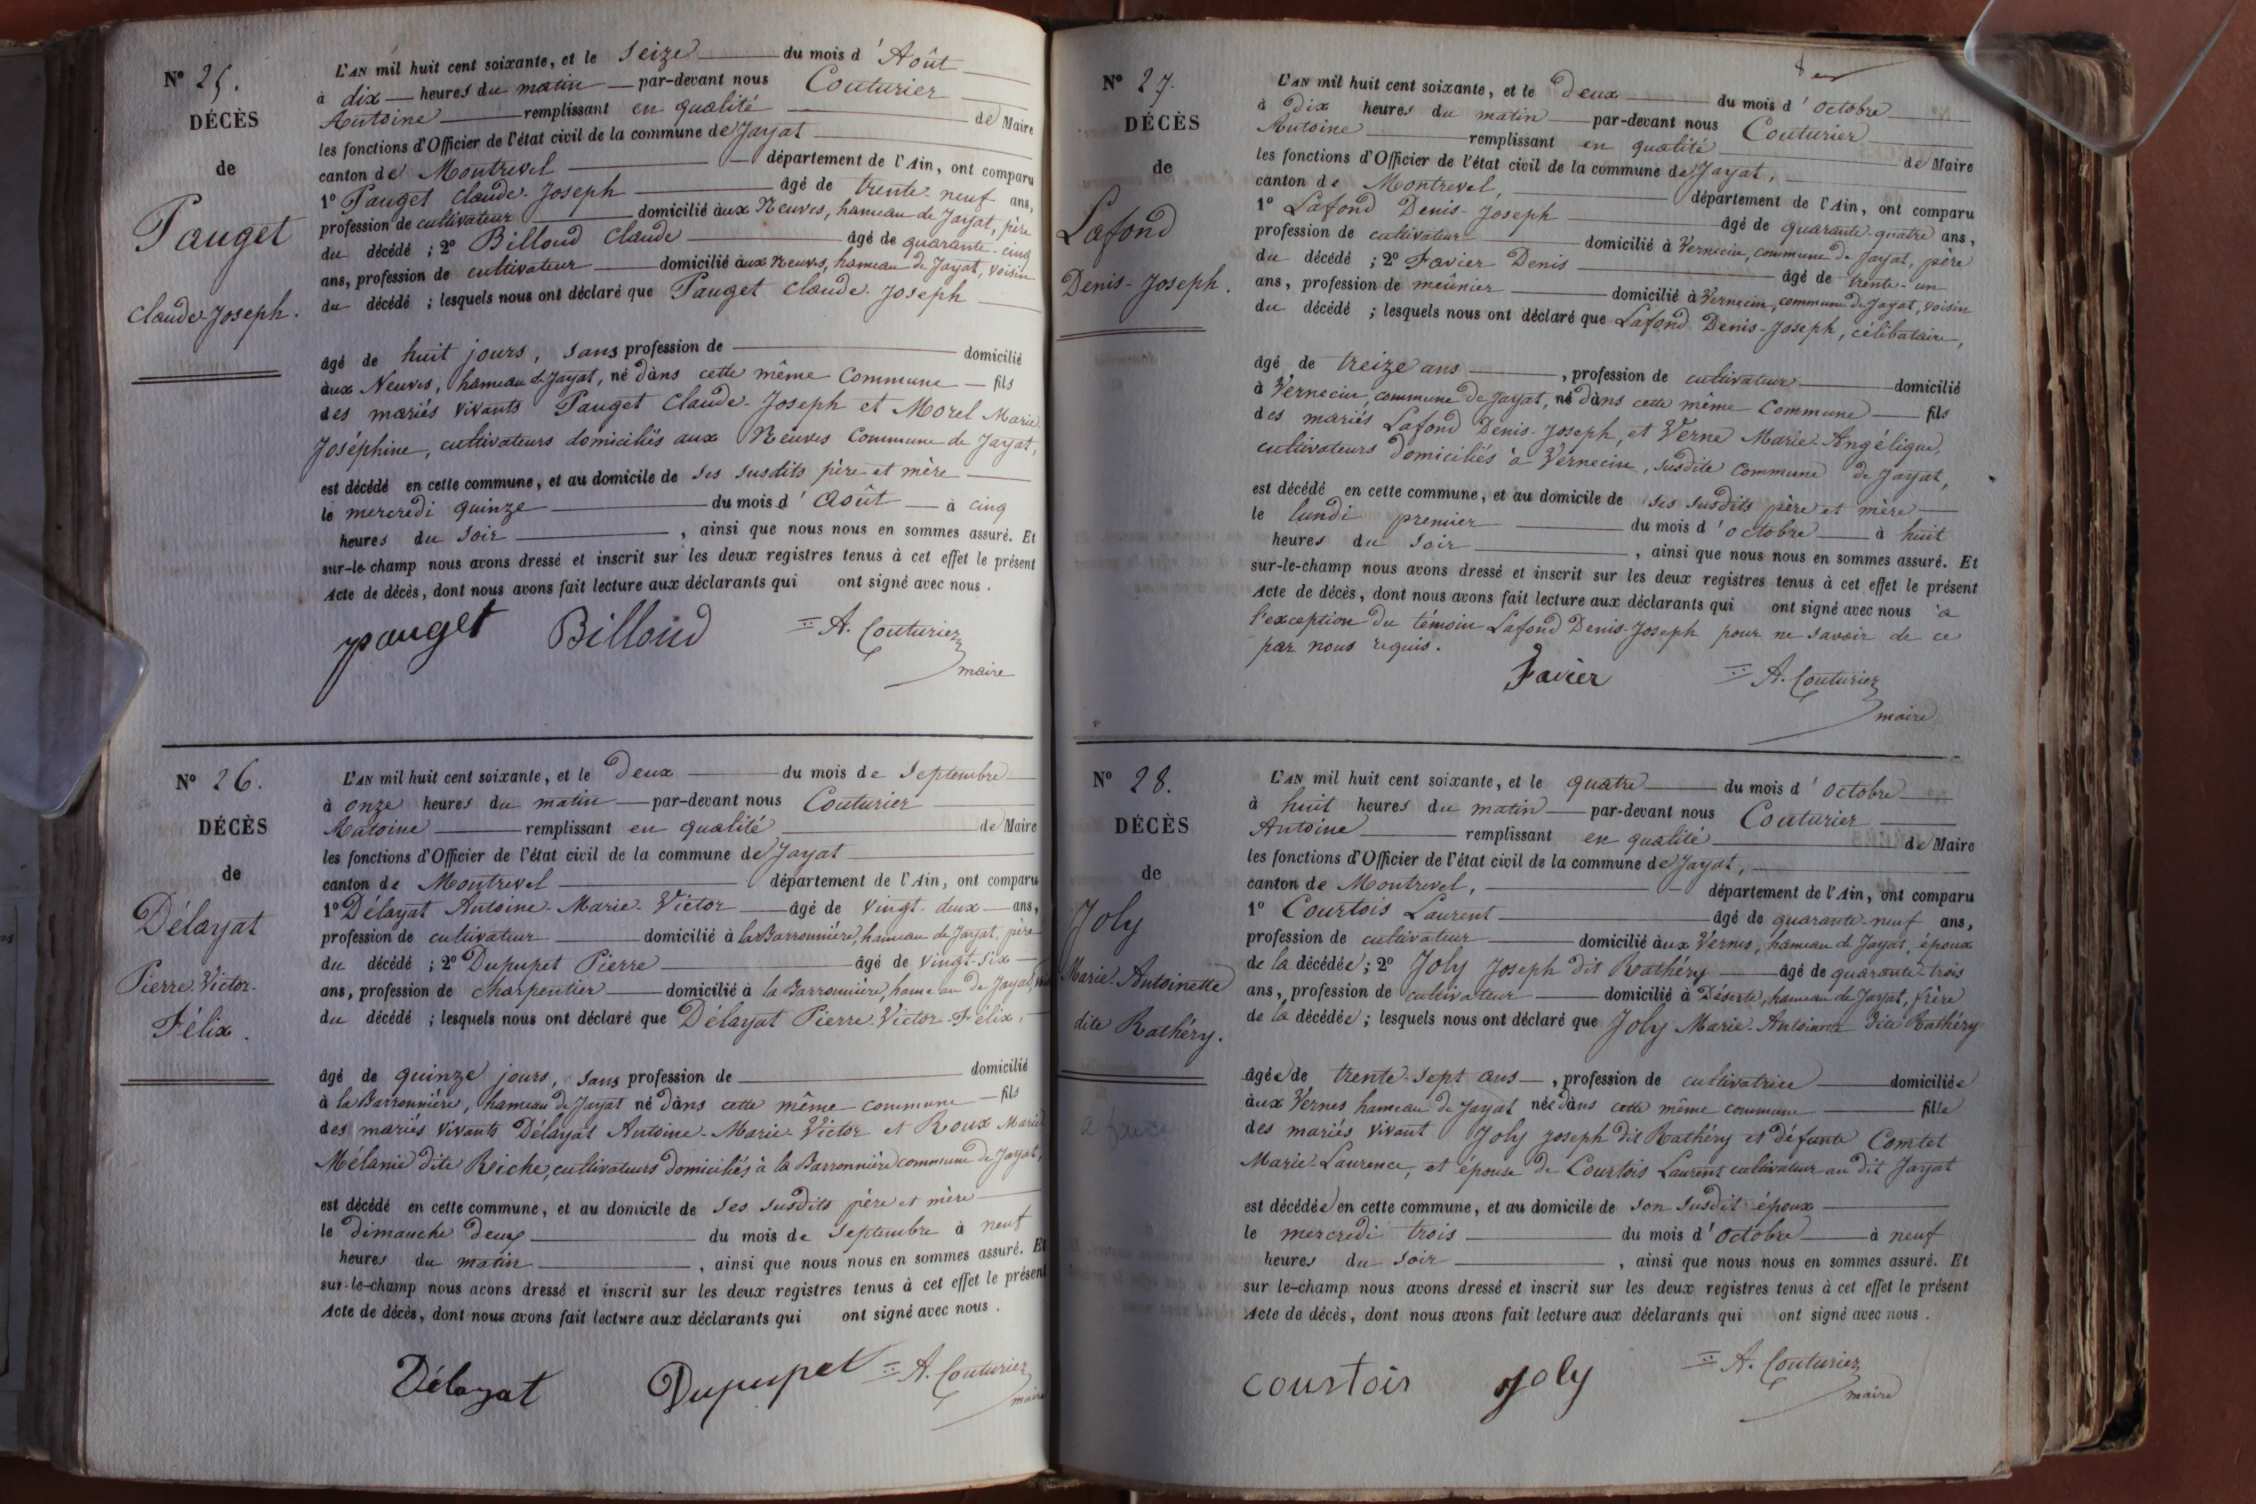 Nº 25.
DÉCÈS
de
Pauget
Claude-Joseph.
L'AN mil huit cent soixante, et le seize du mois d'Août
à dix heures du matin par-devant nous Couturier
Antoine remplissant en qualité de Maire
les fonctions d'Officier de l'état civil de la commune de Jayat
canton de Montrevel département de l'Ain, ont comparu
1º Pauget Claude-Joseph âgé de trente-neuf ans,
profession de cultivateur domicilié aux Neuves, hameau de Jayat, père
du décédé ; 2º Billoud Claude âgé de quarante-cinq
ans, profession de cultivateur domicilié aux Neuves, hameau de Jayat, voisin
du décédé ; lesquels nous ont déclaré que Pauget Claude-Joseph
âgé de huit jours, sans profession de domicilié
aux Neuves, hameau de Jayat, né dans cette même commune fils
des mariés vivants Pauget Claude-Joseph et Morel Marie
Joséphine, cultivateurs domiciliés aux Neuves commune de Jayat,
est décédé en cette commune, et au domicile de ses susdits père et mère
le mercredi quinze du mois d'Août à cinq
heures du soir , ainsi que nous nous en sommes assuré. Et
sur-le-champ nous avons dressé et inscrit sur les deux registres tenus à cet effet le présent
Acte de décès, dont nous avons fait lecture aux déclarants qui ont signé avec nous.
pauget Billoud A. Couturier
maire
Nº 26.
DÉCÈS
de
Délayat
Pierre-Victor-
Félix.
L'AN mil huit cent soixante, et le deux du mois de septembre
à onze heures du matin par-devant nous Couturier
Antoine remplissant en qualité de Maire
les fonctions d'Officier de l'état civil de la commune de Jayat
canton de Montrevel département de l'Ain, ont comparu
1º Délayat Antoine-Marie-Victor âgé de vingt-deux ans,
profession de cultivateur domicilié à la Barronnière, hameau de Jayat, père
du décédé ; 2º Dupupet Pierre âgé de vingt-six
ans, profession de charpentier domicilié à la Barronnière, hameau de Jayat,
du décédé ; lesquels nous ont déclaré que Délayat Pierre-Victor-Félix,
âgé de quinze jours, sans profession de domicilié
à la Barronnière, hameau de Jayat né dans cette même commune fils
des mariés vivants Délayat Antoine-Marie-Victor et Roux Marie
Mélanie dite Reiche, cultivateurs domiciliés à la Barronnière commune de Jayat,
est décédé en cette commune, et au domicile de ses susdits père et mère
le dimanche deux du mois de septembre à neuf
heures du matin , ainsi que nous nous en sommes assuré. Et
sur-le-champ nous avons dressé et inscrit sur les deux registres tenus à cet effet le présent
Acte de décès, dont nous avons fait lecture aux déclarants qui ont signé avec nous.
Délayat Dupupet A. Couturier
maire
Nº 27.
DÉCÈS
de
Lafond
Denis-Joseph.
L'AN mil huit cent soixante, et le deux du mois d'octobre
à dix heures du matin par-devant nous Couturier
Antoine remplissant en qualité de Maire
les fonctions d'Officier de l'état civil de la commune de Jayat,
canton de Montrevel, département de l'Ain, ont comparu
1º Lafond Denis-Joseph âgé de quarante-quatre ans,
profession de cultivateur domicilié à Vernecin, commune de Jayat, père
du décédé ; 2º Favier Denis âgé de trente-un
ans, profession de meûnier domicilié à Vernecin, commune de Jayat, voisin
du décédé ; lesquels nous ont déclaré que Lafond Denis-Joseph, célibataire,
âgé de treize ans , profession de cultivateur domicilié
à Vernecin, commune de Jayat, né dans cette même commune fils
des mariés Lafond Denis-Joseph, et Verne Marie-Angélique,
cultivateurs domiciliés à Vernecin, susdite commune de Jayat,
est décédé en cette commune, et au domicile de ses susdits père et mère
le lundi premier du mois d'octobre à huit
heures du soir , ainsi que nous nous en sommes assuré. Et
sur-le-champ nous avons dressé et inscrit sur les deux registres tenus à cet effet le présent
Acte de décès, dont nous avons fait lecture aux déclarants qui ont signé avec nous à
l'exception du témoin Lafond Denis-Joseph pour ne savoir de ce
par nous requis.
Favier A. Couturier
maire
Nº 28.
DÉCÈS
de
Joly
Marie-Antoinette
dite Rathéry.
L'AN mil huit cent soixante, et le quatre du mois d'octobre
à huit heures du matin par-devant nous Couturier
Antoine remplissant en qualité de Maire
les fonctions d'Officier de l'état civil de la commune de Jayat,
canton de Montrevel, département de l'Ain, ont comparu
1º Courtois Laurent âgé de quarante-neuf ans,
profession de cultivateur domicilié aux Vernes, hameau de Jayat, époux
de la décédée ; 2º Joly Joseph dit Rathéry âgé de quarante-trois
ans, profession de cultivateur domicilié à Déserte, hameau de Jayat, frère
de la décédée ; lesquels nous ont déclaré que Joly Marie-Antoinette dite Rathéry
âgée de trente-sept ans , profession de cultivatrice domiciliée
aux Vernes hameau de Jayat née dans cette même commune fille
des mariés vivant Joly Joseph dit Rathéry et défunte Comtet
Marie-Laurence, et épouse de Courtois Laurent cultivateur au dit Jayat
est décédée en cette commune, et au domicile de son susdit époux
le mercredi trois du mois d'octobre à neuf
heures du soir , ainsi que nous nous en sommes assuré. Et
sur le-champ nous avons dressé et inscrit sur les deux registres tenus à cet effet le présent
Acte de décès, dont nous avons fait lecture aux déclarants qui ont signé avec nous.
courtois joly A. Couturier
maire